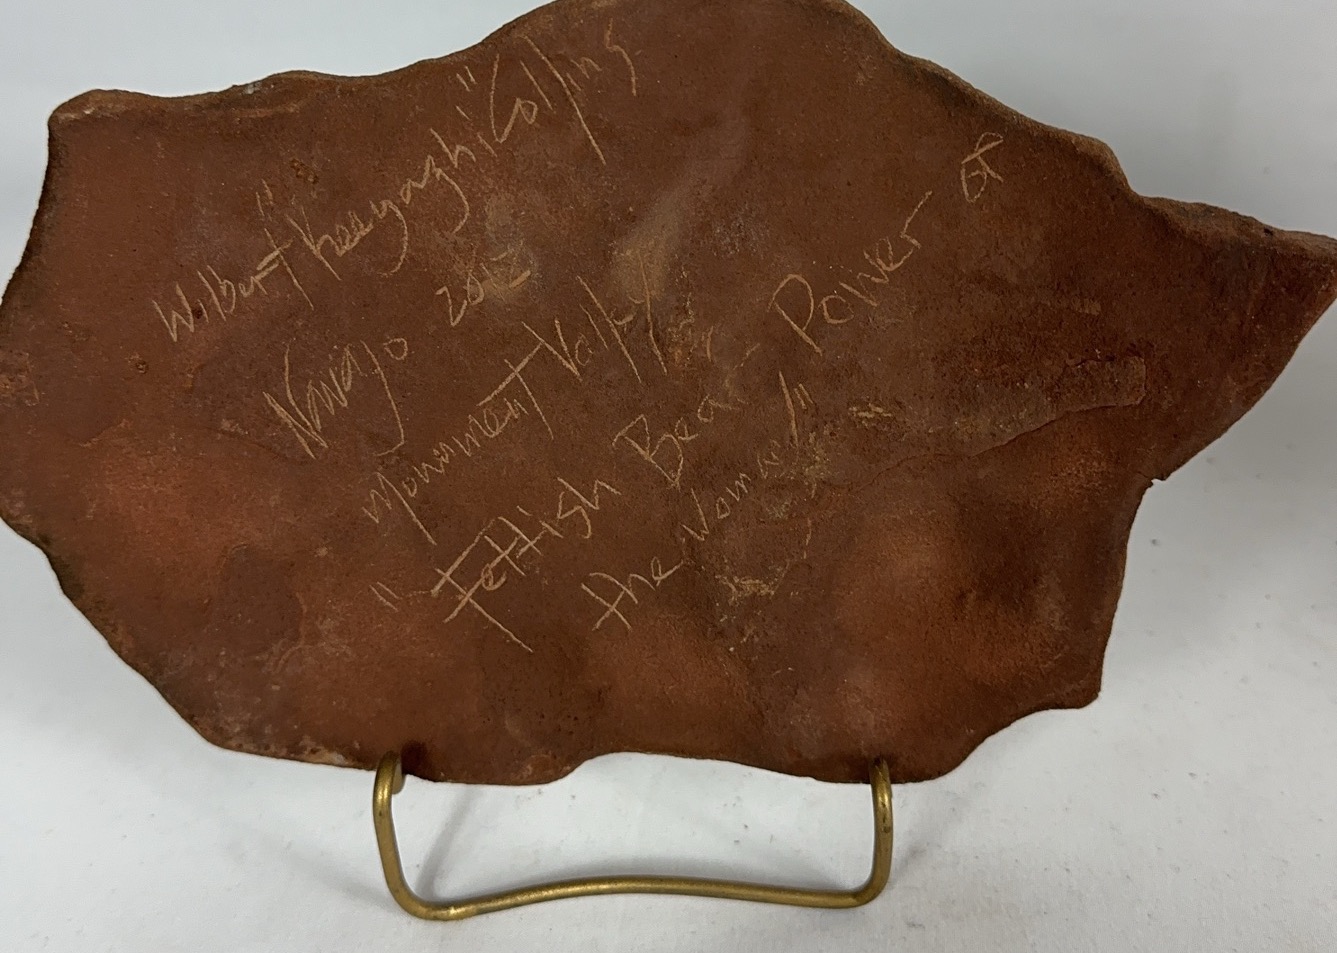 Wilbert "Keeyazhi" Collins
Navajo 2012
Monument Valley
"Fettish Bear Power of
the Woman"